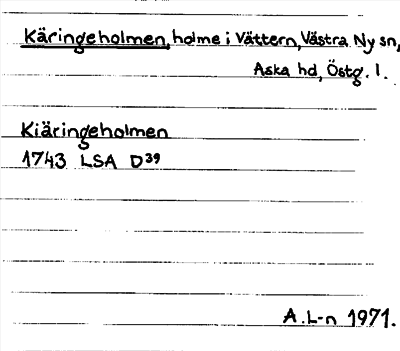 Käringeholmen, holme i Vättern, Västra Ny sn,
Aska hd, Östg. l.
Kiäringeholmen
1743 LSA D39
A.L-n 1971.